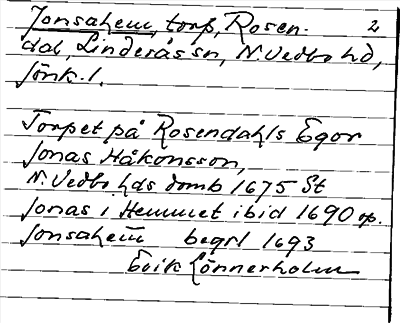 Jonsahem, torp, Rosen- 2
dal, Linderås sn, N. Vedbo hd,
Jönk. l.
Torpet på Rosendahls Egor
Jonas Håkonsson,
N. Vedbo hds domb 1675 St
Jonas i Hemmet ibid 1690 op.
Jonsahem begrl 1693
Erik Lönnerholm